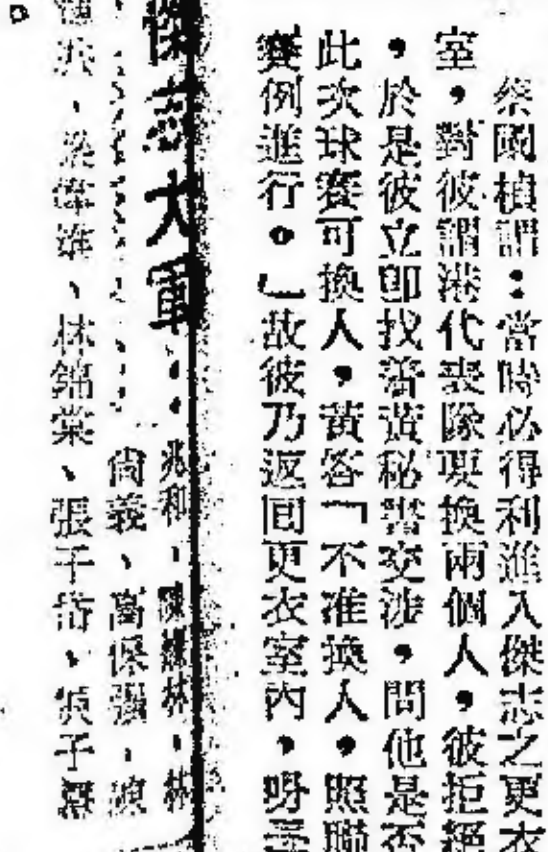 蔡國楨謂：當時必得利進入傑志之更衣
室，對彼謂港代表隊要換兩個人，彼拒絕
，於是彼立即找普黃秘書交涉，問他是否
此次球賽可換人，黃答「不准換人，照聯
賽例進行。」故彼乃返回更衣室內，
大軍：兆和、林
尚義、高保強、
林錦棠、張子岱、張子